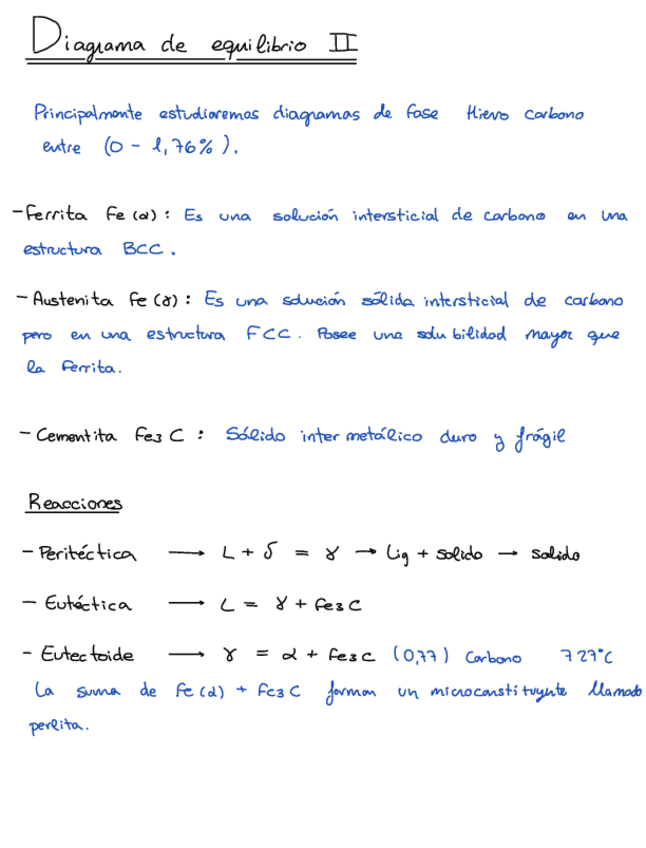 Diagrama de equilibrio II
Principalmente estudiaremos diagramas de fase Hierro carbono
entre (0 - 1,76%).
- Ferrita Fe (α) : Es una solución intersticial de carbono en una
estructura BCC.
- Austenita Fe (γ) : Es una solución sólida intersticial de carbono
pero en una estructura FCC. Posee una solubilidad mayor que
la Ferrita.
- Cementita Fe3 C : Sólido intermetálico duro y frágil
Reacciones
- Peritéctica → L + δ = γ → Liq + solido → solido
- Eutéctica → L = γ + Fe3C
- Eutectoide → γ = α + Fe3C (0,77) Carbono 727°C
La suma de Fe (α) + Fe3C forman un microconstituyente llamado
perlita.